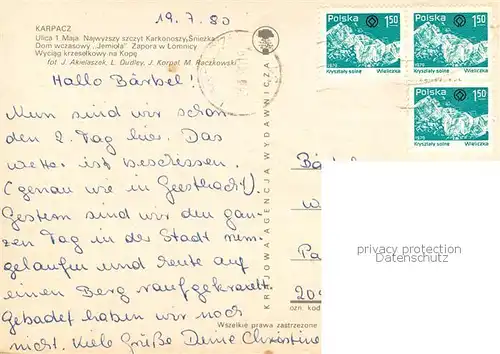 19.7.80
KARPACZ
Ulica 1 Maja Najwyższy szczyt Karkonoszy, Śnieżka
Dom wczasowy „Jemioła" Zapora w Łomnicy
Wyciąg krzesełkowy na Kopę
fot J. Akielaszek, L. Dudley, J. Korpal, M. Raczkowski
Hallo Bärbel!
Nun sind wir schon
den 2. Tag hier. Das
Wetter ist beschissen.
(genau wie in Geesthacht).
Gestern sind wir den gan-
zen Tag in der Stadt rum-
gelaufen und heute auf
einen Berg raufgekraxelt.
Gebadet haben wir noch
nicht. Viele Grüße Deine Christine
KRAJOWA AGENCJA WYDAWNICZA
Polska
1,50
1979
Kryształy solne Wieliczka
Polska
1,50
1979
Kryształy solne Wieliczka
Polska
1,50
1979
Kryształy solne Wieliczka
privacy protection
DAMSTAC
ozn. kod
Wszelkie prawa zastrzeżone